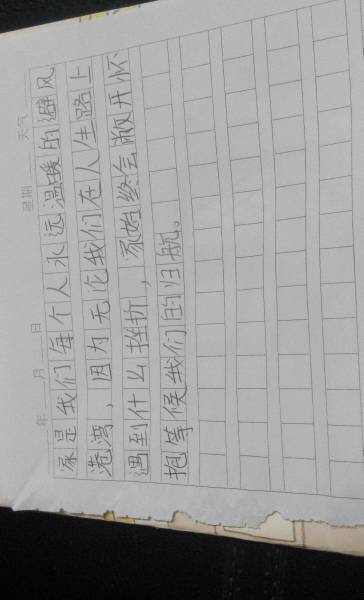 年 月 日 星期 天气
家是我们每个人永远温暖的避风
港湾，因为无论我们在人生路上
遇到什么挫折，家始终会敞开怀
抱等候我们的归航。